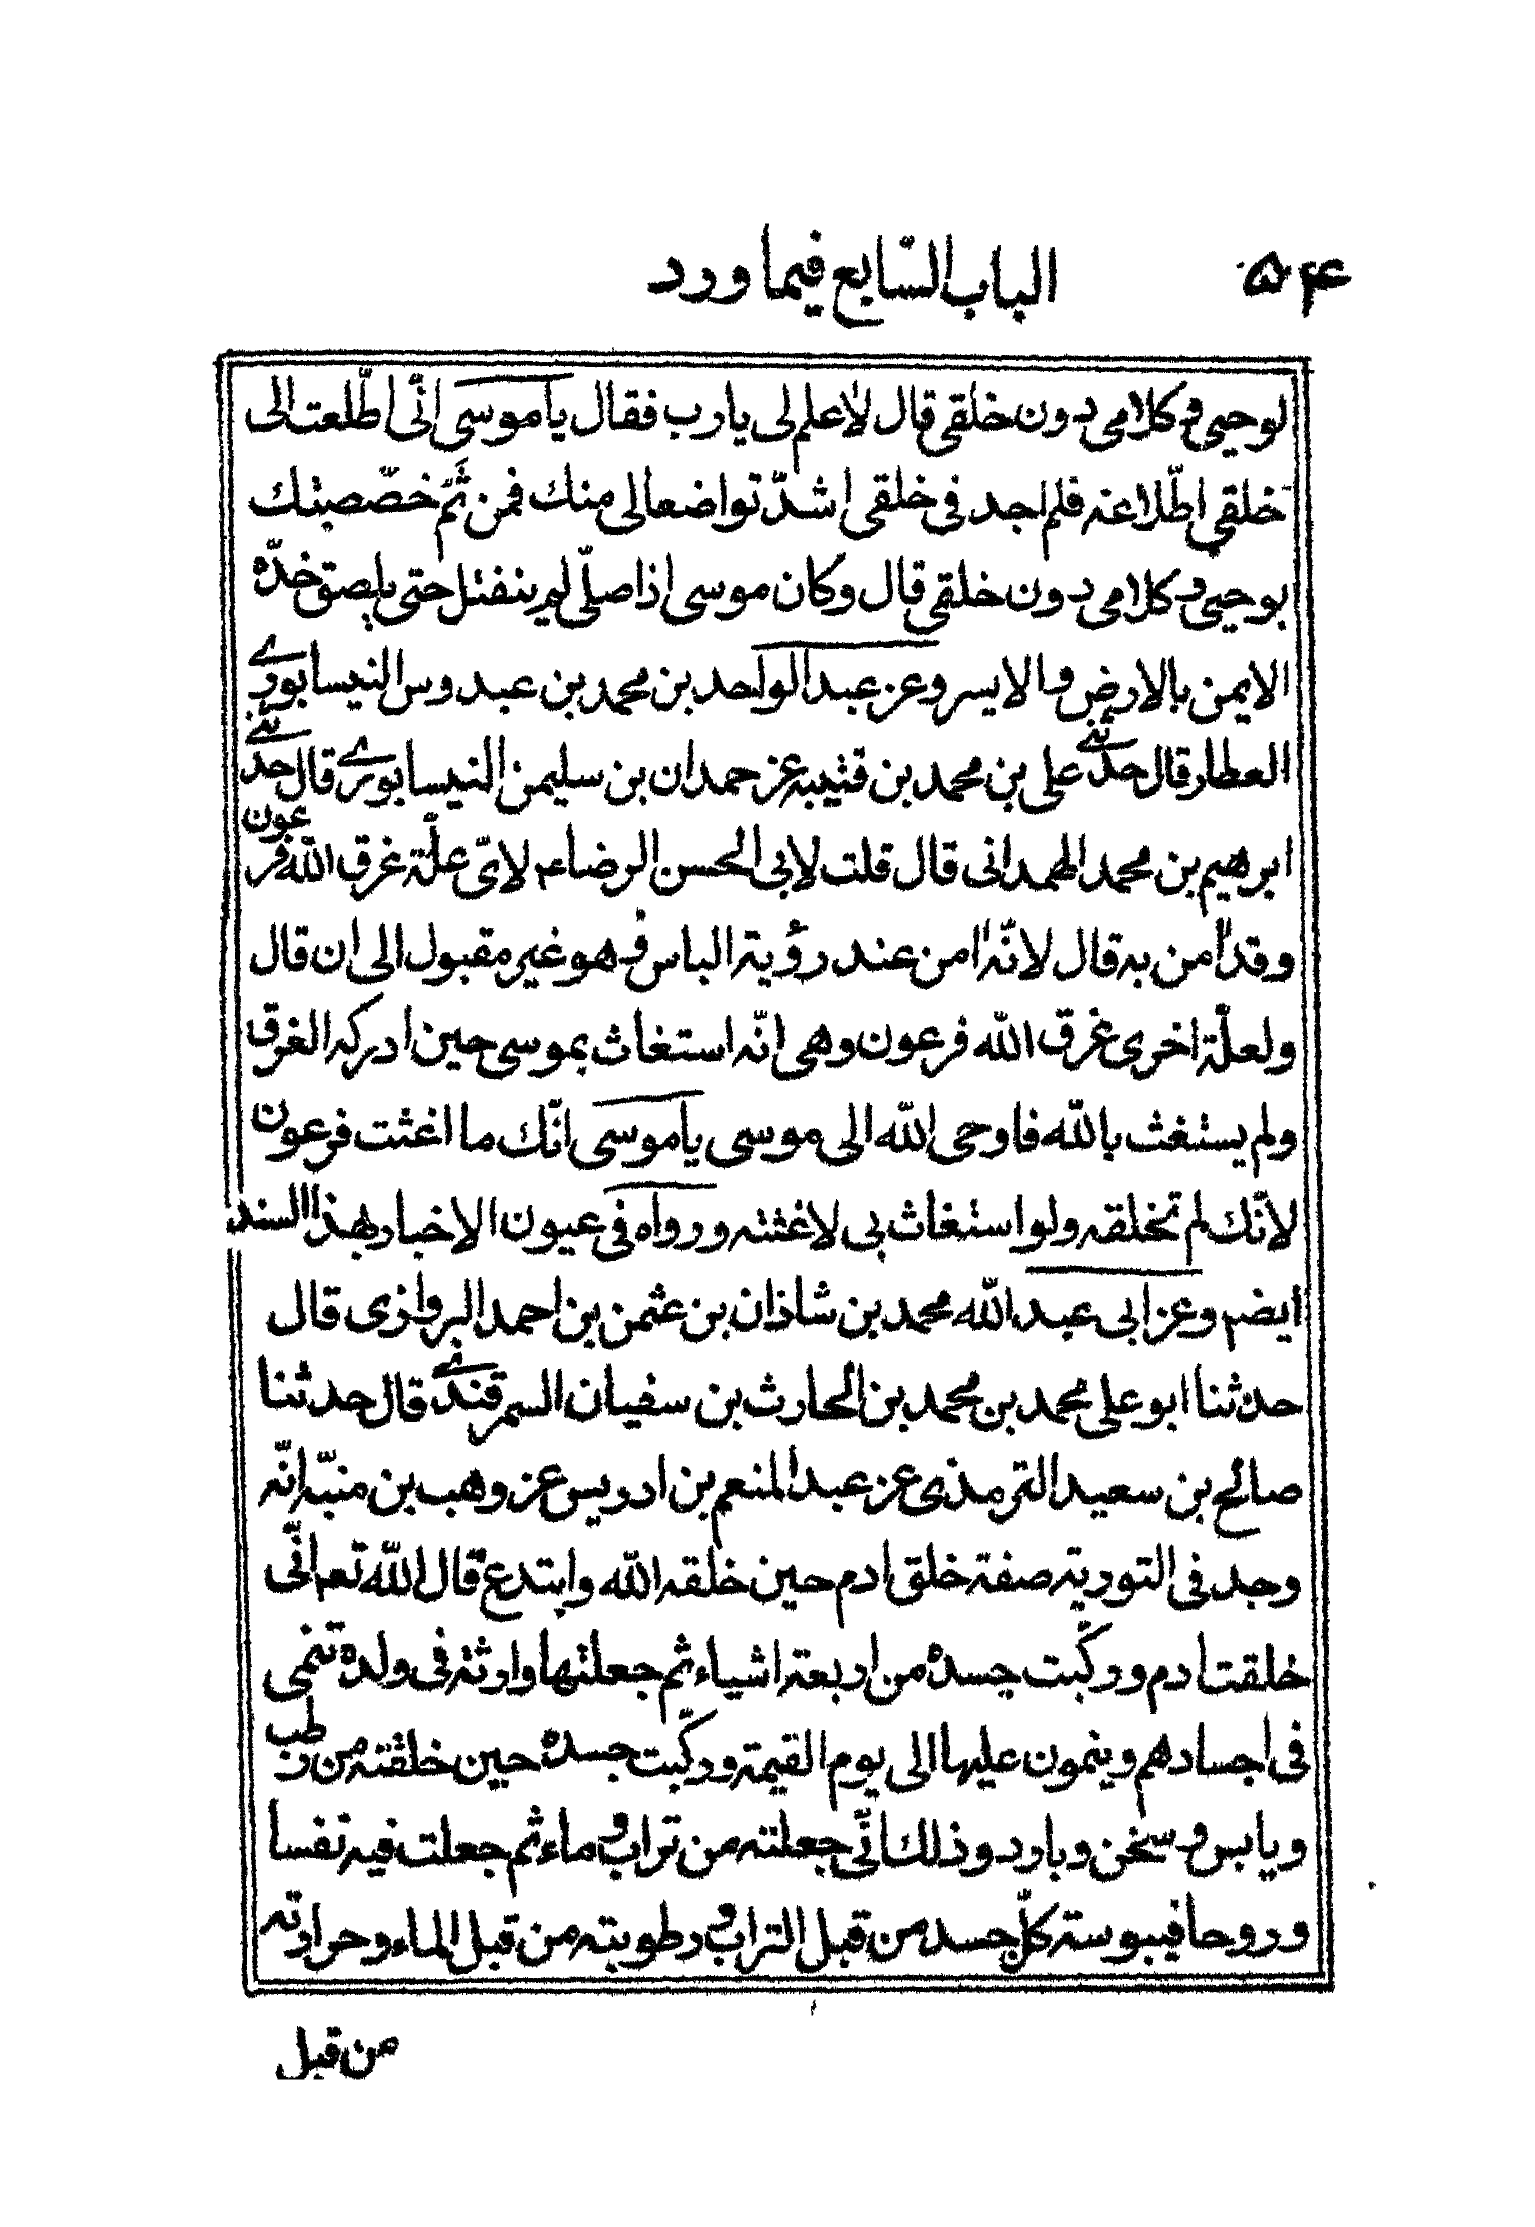 ۵۴ الباب السّابع فيما ورد
لوحيى و كلامى دون خلقى قال لا علم لى يا رب فقال يا موسى انّى اطّلعت الى
خلقى اطّلاعة فلم اجد فى خلقى اشدّ تواضعا لى منك فمن ثَمّ خصّصتك
بوحيى و كلامى دون خلقى قال و كان موسى اذا صلّى لم ينفتل حتى يلصق خدّه
الايمن بالارض و الايسر و عن عبد الواحد بن محمد بن عبدوس النيسابورى
العطار قال حدثنى على بن محمد بن قتيبة عن حمدان بن سليمن النيسابورى قال حدثنى
ابرهيم بن محمد الهمدانى قال قلت لابى الحسن الرضاء ع لاىّ علّة غرق الله فرعون
و قد امن به قال لانّه امن عند رؤية الباس و هو غير مقبول الى ان قال
و لعلّة اخرى غرق الله فرعون و هى انّه استغاث بموسى حين ادركه الغرق
و لم يستغث بالله فاوحى الله الى موسى يا موسى انّك ما اغثت فرعون
لانّك لم تخلقه و لو استغاث بى لاغثته و رواه فى عيون الاخبار بهذا السند
ايضم و عن ابى عبد الله محمد بن شاذان بن عثمن بن احمد البرواذى قال
حدثنا ابو على محمد بن محمد بن الحارث بن سفيان السمرقندى قال حدثنا
صالح بن سعيد الترمذى عن عبد المنعم بن ادريس عن وهب بن منبّه انّه
وجد فى التورية صفة خلق ادم حين خلقه الله و ابتدع قال الله تعم انّى
خلقت ادم و ركّبت جسده من اربعة اشياء ثم جعلتها وارثة فى ولده تنمى
فى اجسادهم و ينمون عليها الى يوم القيمة و ركّبت جسده حين خلقته من رطب
و يابس و سخن و بارد و ذلك انّى جعلته من تراب و ماء ثم جعلت فيه نفسا
و روحا فيبوسة كلّ جسد من قبل التراب و رطوبته من قبل الماء و حرارته
من قبل